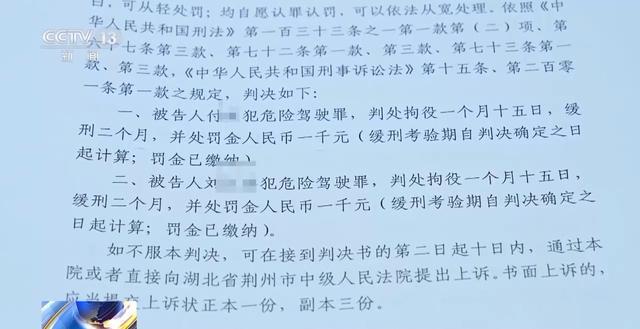 CCTV 13
新闻
白，可从轻处罚；均自愿认罪认罚，可以依法从宽处理。依照《中
华人民共和国刑法》第一百三十三条之一第一款第（二）项、第
六十七条第三款、第七十二条第一款、第三款、第七十三条第一
款、第三款，《中华人民共和国刑事诉讼法》第十五条、第二百零
一条第一款之规定，判决如下：
一、被告人付 犯危险驾驶罪，判处拘役一个月十五日，缓
刑二个月，并处罚金人民币一千元（缓刑考验期自判决确定之日
起计算；罚金已缴纳）
二、被告人刘 犯危险驾驶罪，判处拘役一个月十五日，
缓刑二个月，并处罚金人民币一千元（缓刑考验期自判决确定之
日起计算；罚金已缴纳）。
如不服本判决，可在接到判决书的第二日起十日内，通过本
院或者直接向湖北省荆州市中级人民法院提出上诉。书面上诉的，
应当提交上诉状正本一份，副本三份。